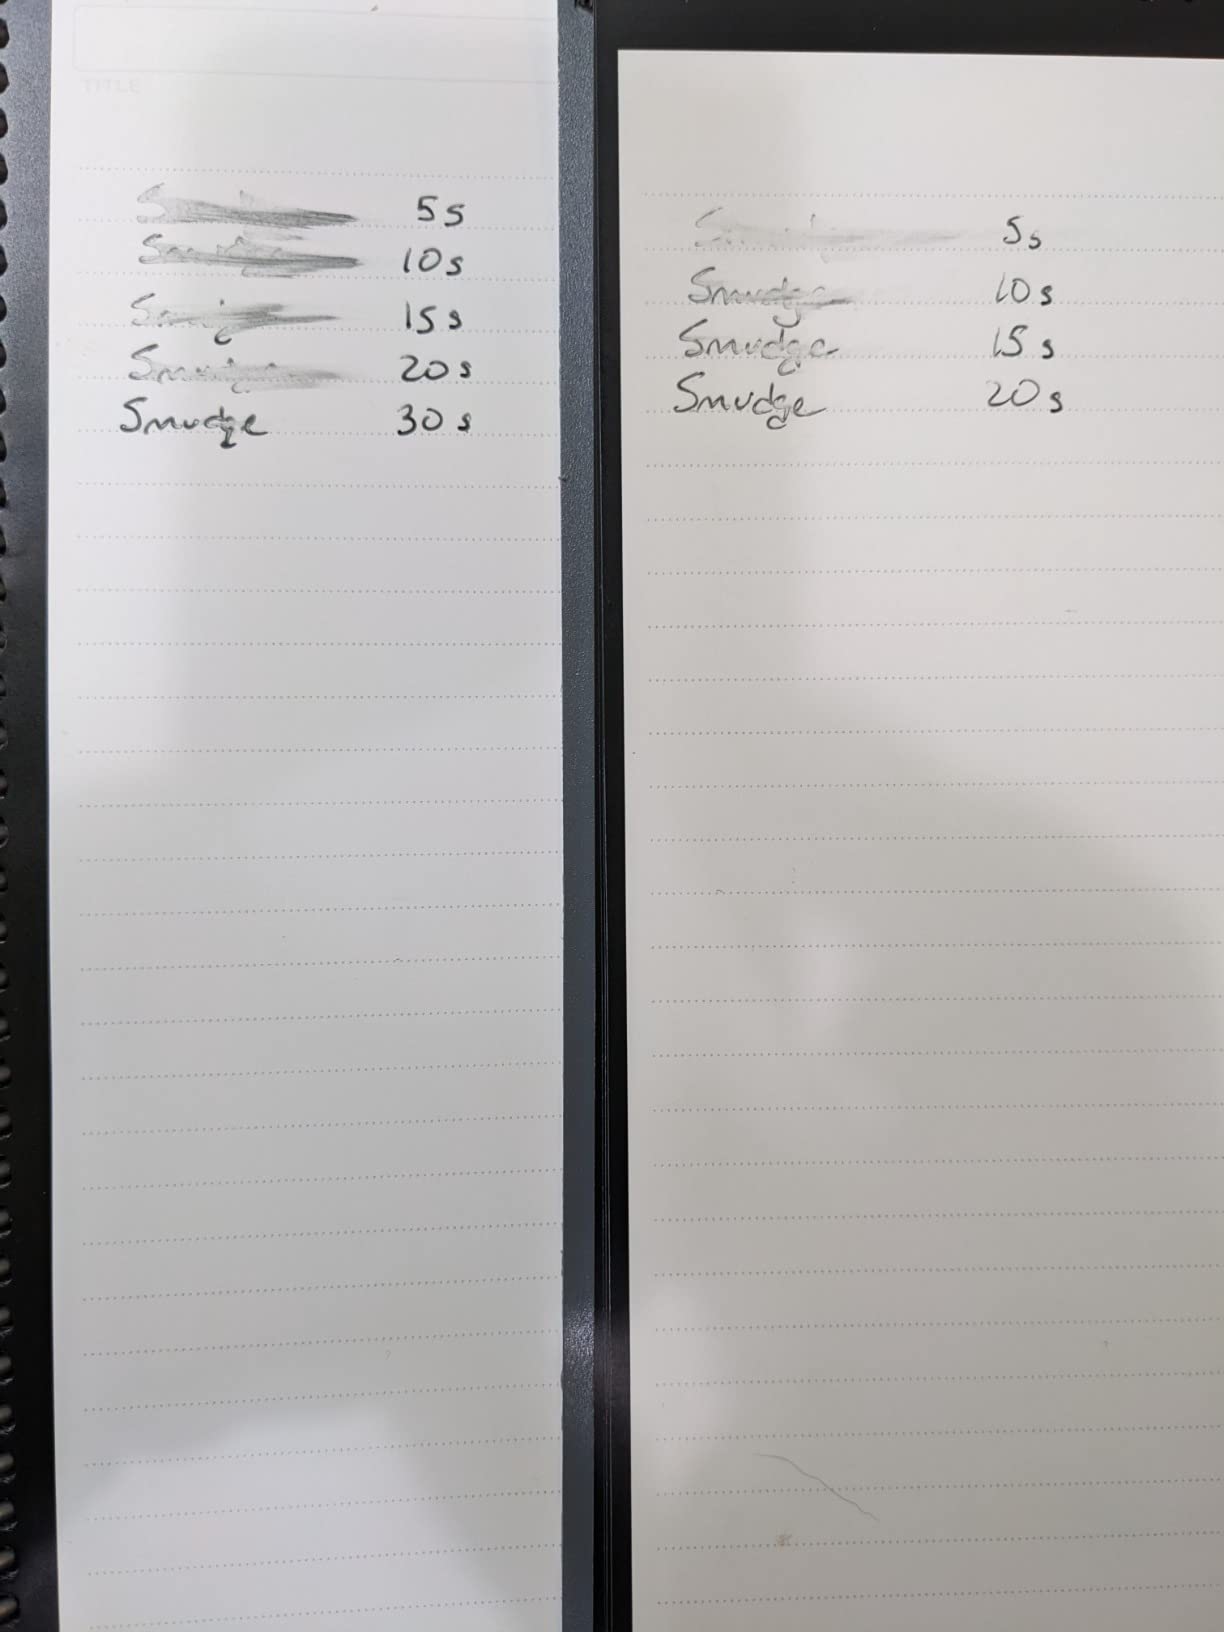 TITLE
5s
10s
15s
20s
Smudge 30s
5s
Smudge 10s
Smudge 15s
Smudge 20s